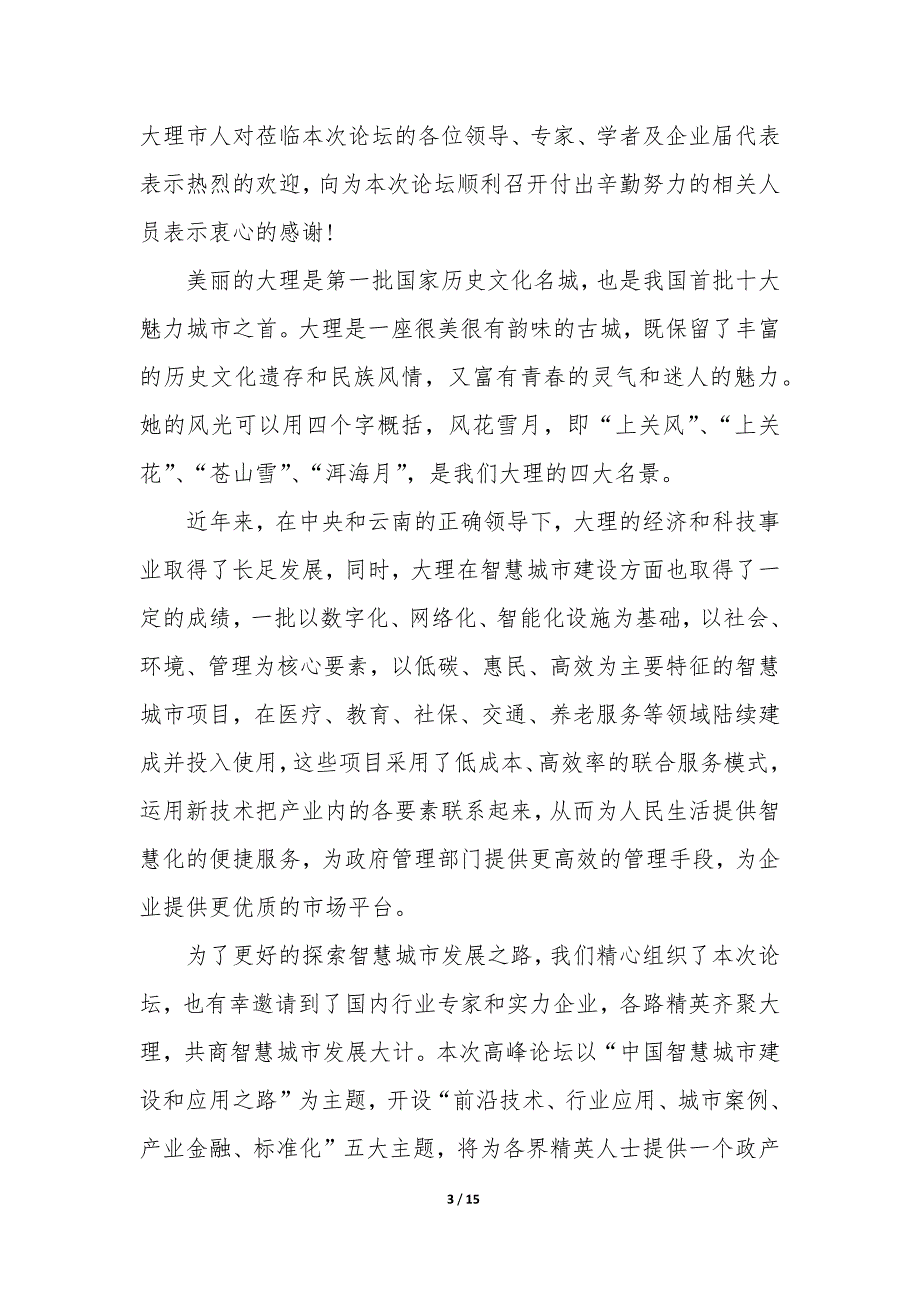 大理市人对莅临本次论坛的各位领导、专家、学者及企业届代表
表示热烈的欢迎，向为本次论坛顺利召开付出辛勤努力的相关人
员表示衷心的感谢!
美丽的大理是第一批国家历史文化名城，也是我国首批十大
魅力城市之首。大理是一座很美很有韵味的古城，既保留了丰富
的历史文化遗存和民族风情，又富有青春的灵气和迷人的魅力。
她的风光可以用四个字概括，风花雪月，即“上关风”、“上关
花”、“苍山雪”、“洱海月”，是我们大理的四大名景。
近年来，在中央和云南的正确领导下，大理的经济和科技事
业取得了长足发展，同时，大理在智慧城市建设方面也取得了一
定的成绩，一批以数字化、网络化、智能化设施为基础，以社会、
环境、管理为核心要素，以低碳、惠民、高效为主要特征的智慧
城市项目，在医疗、教育、社保、交通、养老服务等领域陆续建
成并投入使用，这些项目采用了低成本、高效率的联合服务模式，
运用新技术把产业内的各要素联系起来，从而为人民生活提供智
慧化的便捷服务，为政府管理部门提供更高效的管理手段，为企
业提供更优质的市场平台。
为了更好的探索智慧城市发展之路，我们精心组织了本次论
坛，也有幸邀请到了国内行业专家和实力企业，各路精英齐聚大
理，共商智慧城市发展大计。本次高峰论坛以“中国智慧城市建
设和应用之路”为主题，开设“前沿技术、行业应用、城市案例、
产业金融、标准化”五大主题，将为各界精英人士提供一个政产
3 / 15